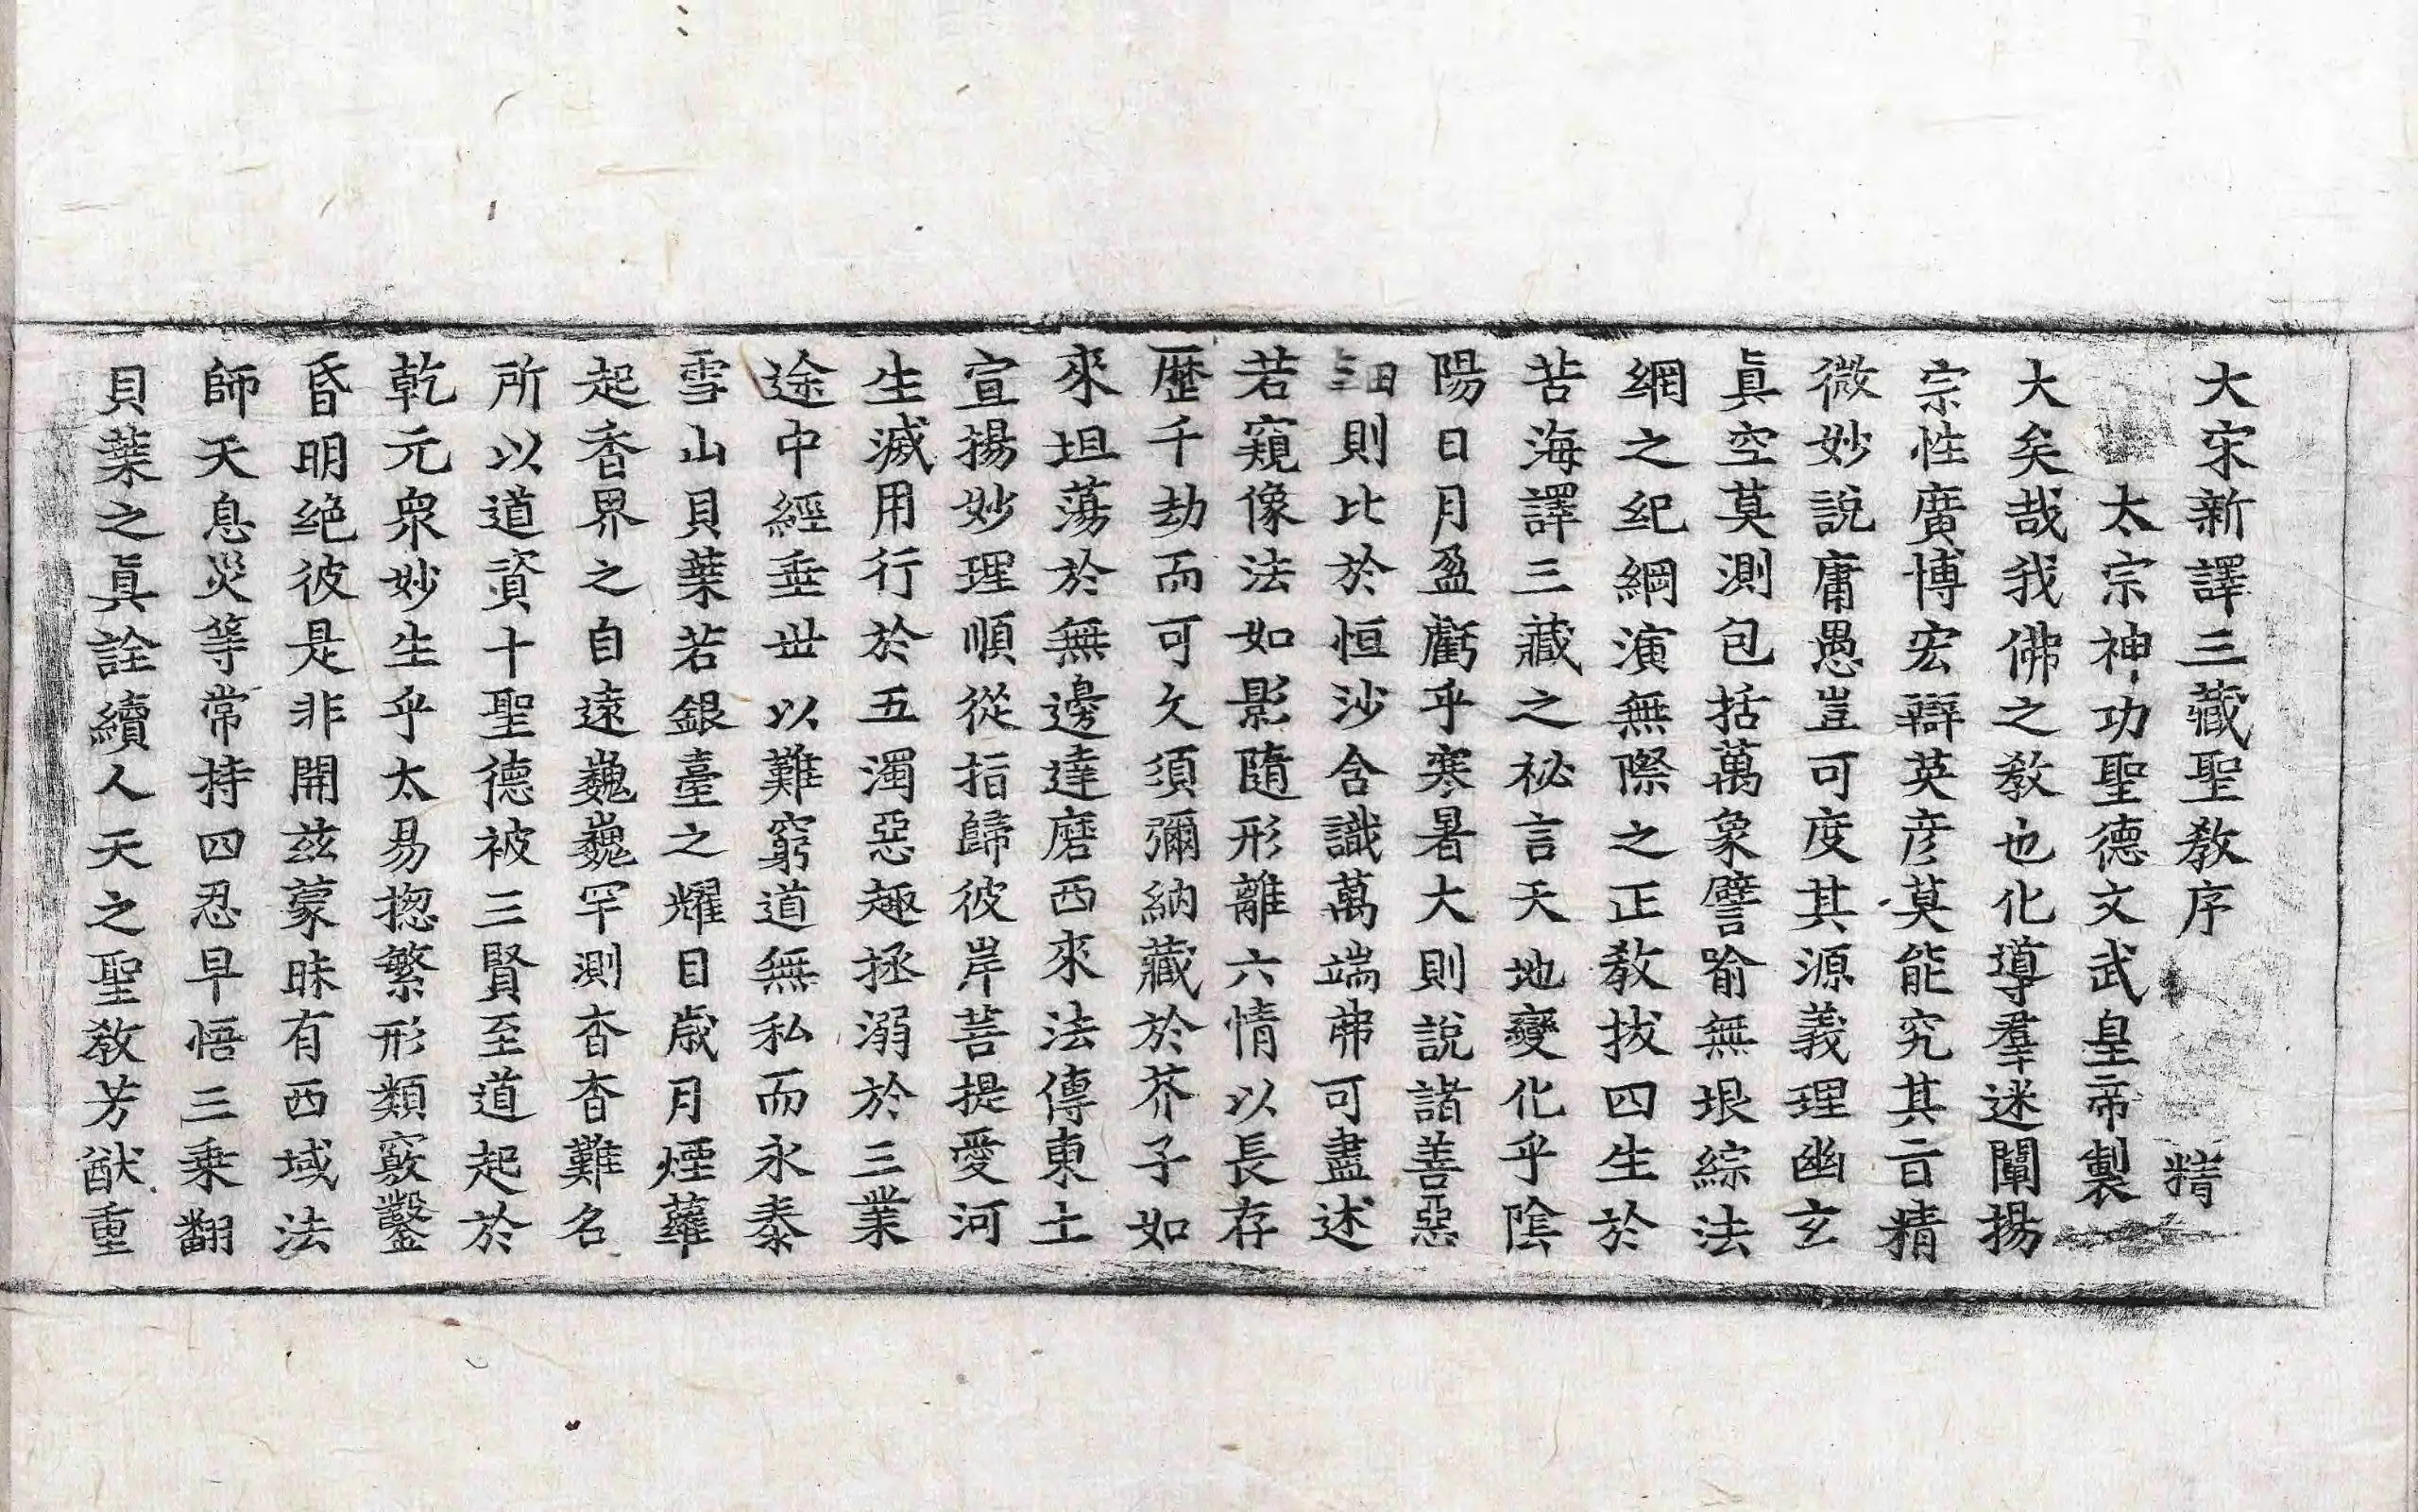 大宋新譯三藏聖教序 精
太宗神功聖德文武皇帝製
大矣哉我佛之教也化導羣迷闡揚
宗性廣博宏辯英彦莫能究其㫖精
微妙說庸愚豈可度其源義理幽玄
眞空莫測包括萬象譬喻無垠綜法
網之紀綱演無際之正教拔四生於
苦海譯三藏之祕言天地變化乎陰
陽日月盈虧乎寒暑大則說諸善惡
細則比於恒沙含識萬端弗可盡述
若窺像法如影隨形離六情以長存
歷千劫而可久須彌納藏於芥子如
來坦蕩於無邊達磨西來法傳東土
宣揚妙理順從指歸彼岸菩提愛河
生滅用行於五濁惡趣拯溺於三業
途中經垂世以難窮道無私而永泰
雪山貝葉若銀臺之耀目歲月煙蘿
起香界之自遠巍巍罕測杳杳難名
所以道資十聖德被三賢至道起於
乾元衆妙生乎太易揔繁形類竅鑿
昏明絕彼是非開兹蒙昧有西域法
師天息災等常持四忍早悟三乘翻
貝葉之眞詮續人天之聖教芳猷重